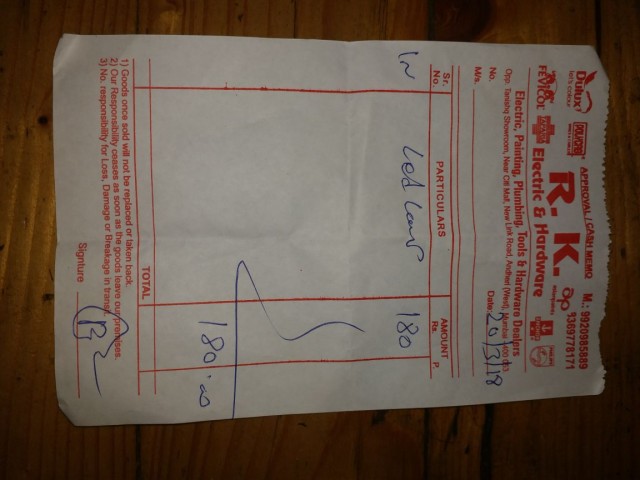 APPROVAL / CASH MEMO
M.: 9920985889
9369778171
Dulux
let's colour
POLYCAB
FEVICOL
R. K.
Electric & Hardware
Electric, Painting, Plumbing, Tools & Hardware Dealers
Opp. Tanishq Showroom, Near Citi Mall, New Link Road, Andheri (West), Mumbai - 400 053
No.
Date: 20/3/18
M/s.
Sr. No. PARTICULARS AMOUNT
Rs. P.
LED Lamp 180
TOTAL 180.00
1) Goods once sold will not be replaced or taken back.
2) Our Responsibility ceases as soon as the goods leave our premises.
3) No. responsibility for Loss, Damage or Breakage in transit.
Signture